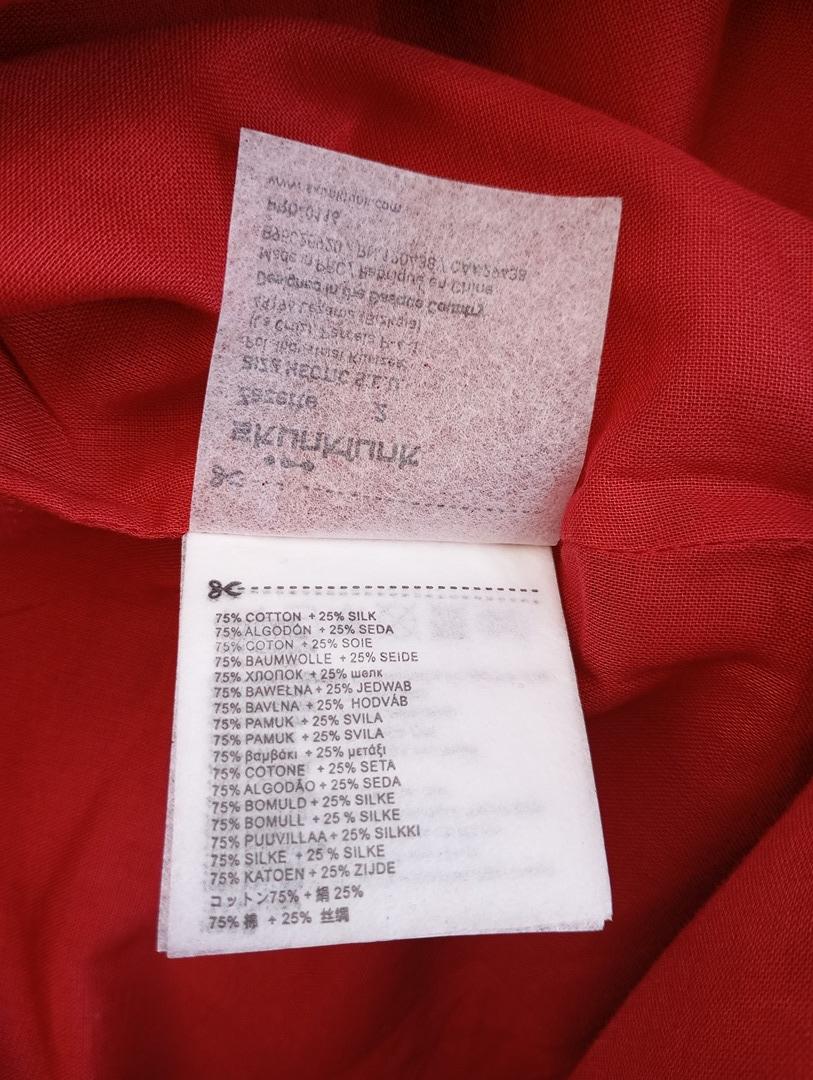 skunkfunk
Zazerte 2
BIZA HECTIC S.E.U.
Pol. Industrial Kurtzea
(La Cruz)
48196 Lezama (Bizkaia)
Designed in the Basque Country
Made in PRC / Fabriqué en Chine
/ RN120438 / CA#29438
PRD-0116
www.skunkfunk.com
75% COTTON + 25% SILK
75% ALGODÓN + 25% SEDA
75% COTON + 25% SOIE
75% BAUMWOLLE + 25% SEIDE
75% ХЛОПОК + 25% шелк
75% BAWEŁNA + 25% JEDWAB
75% BAVLNA + 25% HODVÁB
75% PAMUK + 25% SVILA
75% PAMUK + 25% SVILA
75% βαμβάκι + 25% μετάξι
75% COTONE + 25% SETA
75% ALGODÃO + 25% SEDA
75% BOMULD + 25% SILKE
75% BOMULL + 25 % SILKE
75% PUUVILLAA + 25% SILKKI
75% SILKE + 25 % SILKE
75% KATOEN + 25% ZIJDE
コットン75% + 絹 25%
75% 棉 + 25% 丝绸